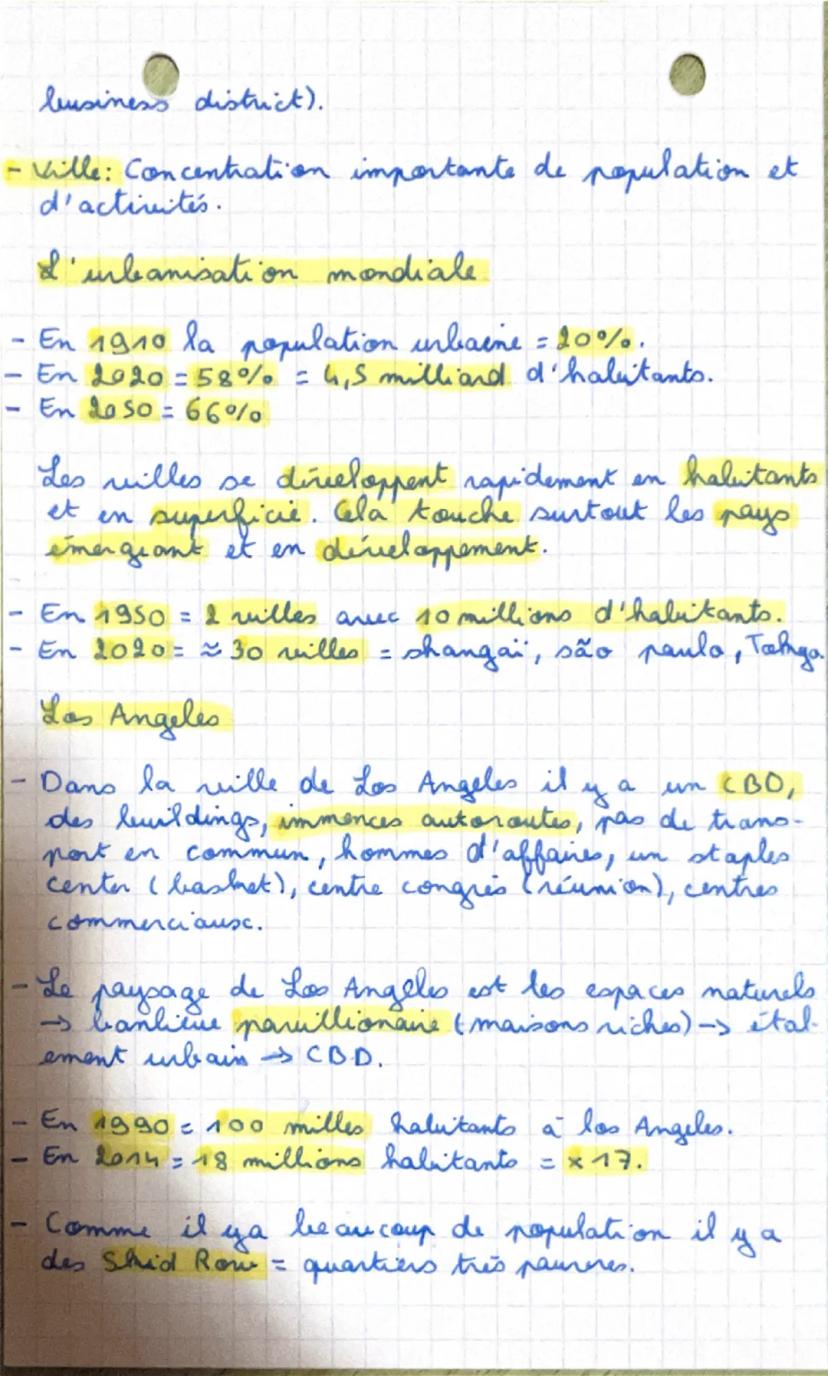 business district).
- Ville: Concentration importante de population et
d'activités.
L'urbanisation mondiale
- En 1910 la population urbaine = 20%.
- En 2020 = 58% = 4,5 milliard d'habitants.
- En 2050 = 66%
Les villes se développent rapidement en habitants
et en superficie. Cela touche surtout les pays
émergeant et en développement.
- En 1950 = 2 villes avec 10 millions d'habitants.
- En 2020 = ≈ 30 villes = shangaï, são paulo,
Los Angeles
- Dans la ville de Los Angeles il y a un CBD,
des buildings, immences autoroutes, pas de trans-
port en commun, hommes d'affaires, un staples
center (basket), centre congrès (réunion), centres
commerciaux.
- Le paysage de Los Angeles est les espaces naturels
→ banlieue pavillionaire (maisons riches) → étal-
ement urbain → CBD.
- En 1990 = 100 milles habitants à los Angeles.
- En 2014 = 18 millions habitants = x 17.
- Comme il y a beaucoup de population il y a
des Skid Row = quartiers très pauvres.